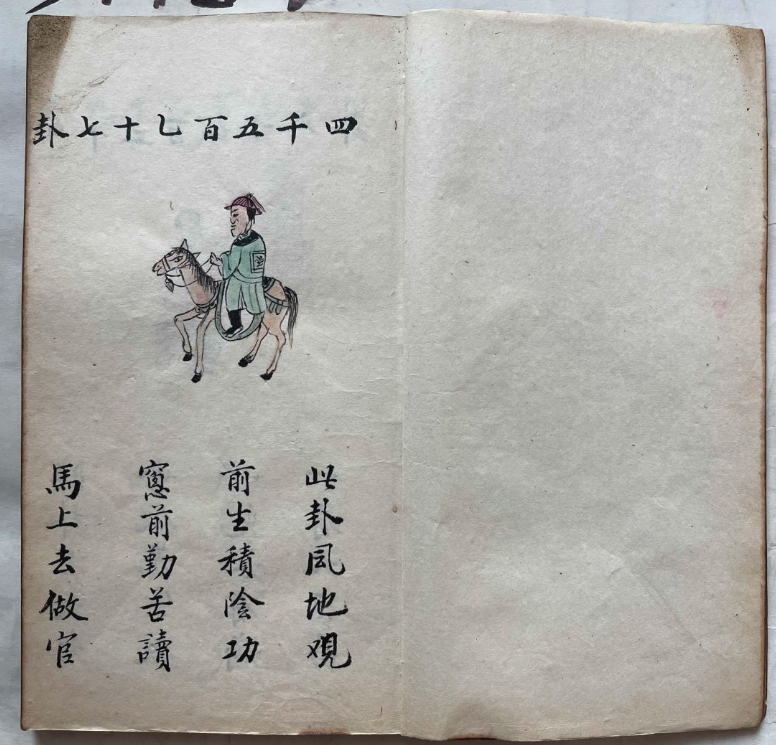 四千五百乚十七卦
此卦风地观
前生積陰功
窓前勤苦讀
馬上去做官